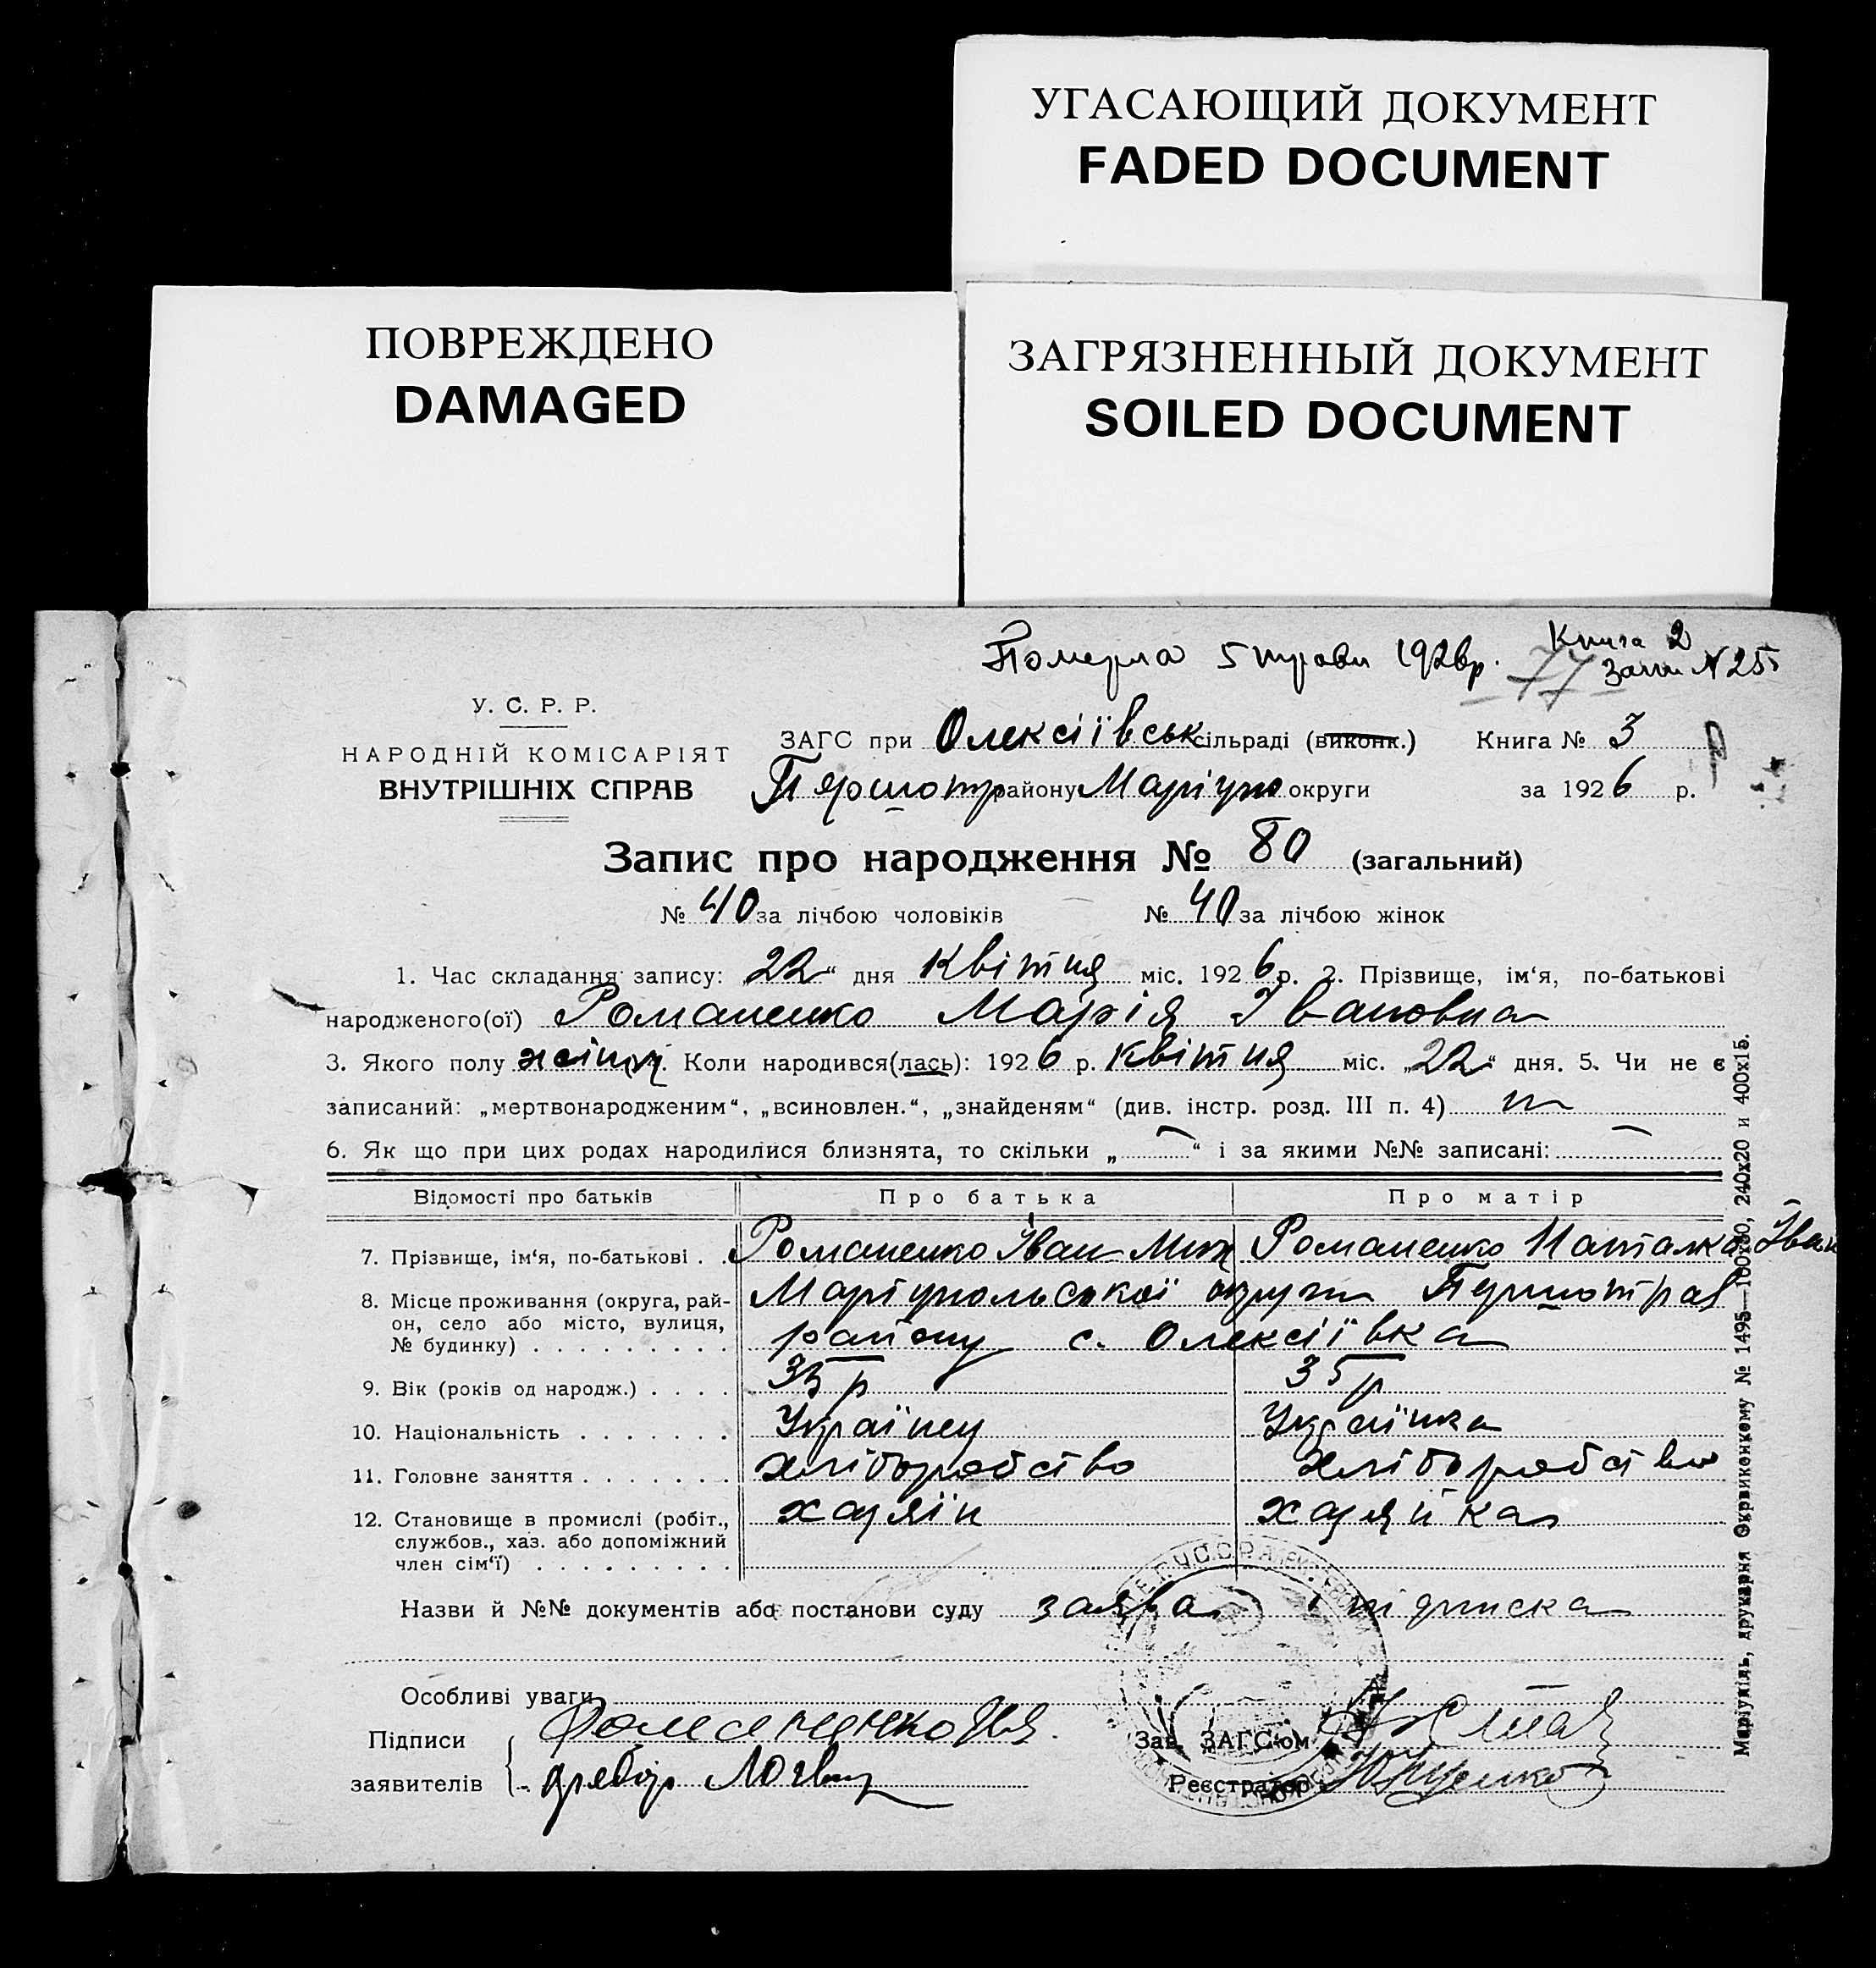 УГАСАЮЩИЙ ДОКУМЕНТ
FADED DOCUMENT
ПОВРЕЖДЕНО
DAMAGED
ЗАГРЯЗНЕННЫЙ ДОКУМЕНТ
SOILED DOCUMENT
Книга 2
Померла 5 трави 1926р. 77 Запи №25
У. С. Р. Р.
НАРОДНІЙ КОМІСАРІЯТ
ВНУТРІШНІХ СПРАВ
ЗАГС при Олексіївськ сільраді (виконк.) Книга № 3
Першотр району Маріуп округи за 1926 р.
Запис про народження № 80 (загальний)
№ 40 за лічбою чоловіків № 40 за лічбою жінок
1. Час складання запису: „22“ дня Квітня міс. 1926 р. 2. Прізвище, ім‘я, по-батькові
народженого(ої) Романенко Марія Івановна
3. Якого полу жіноч. Коли народився(лась): 1926 р. Квітня міс. „22“ дня. 5. Чи не є
записаний: „мертвонародженим“, „всиновлен.“, „знайденям“ (див. інстр. розд. III п. 4)
6. Як що при цих родах народилися близнята, то скільки „—“ і за якими №№ записані: —
Відомості про батьків Про батька Про матір
7. Прізвище, ім‘я, по-батькові . . Романенко Іван Мих Романенко Наталка Іван
8. Місце проживання (округа, рай- Маріупольської округи Першотрав
он, село або місто, вулиця, району с. Олексіївка
№ будинку) . . . . . . . . .
9. Вік (років од народж.) . . . . 35 р 35 р
10. Національність . . . . . . . Українец Українка
11. Головне заняття . . . . . . . хліборобство хліборобство
12. Становище в промислі (робіт., хазяїн хазяйка
службов., хаз. або допоміжний
член сім‘ї) . . . . . . . . .
Назви й №№ документів або постанови суду заява і підписка
Особливі уваги
Підписи Романенко Зав. ЗАГС‘ом
заявителів Реєстратор
Маріупіль, друкарня Окрвиконкому № 1495—100х80, 240х20 и 400х15.